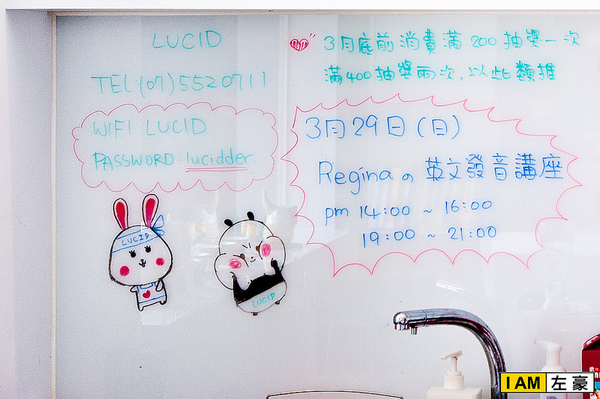 LUCID
TEL:(07)5520711
WIFI:LUCID
PASSWORD:lucidder
3月底前消費滿200抽獎一次
滿400抽獎兩次,以此類推
3月29日(日)
Reginaの英文發音講座
pm 14:00 ~ 16:00
19:00 ~ 21:00
LUCID
LUCID
I AM 左豪